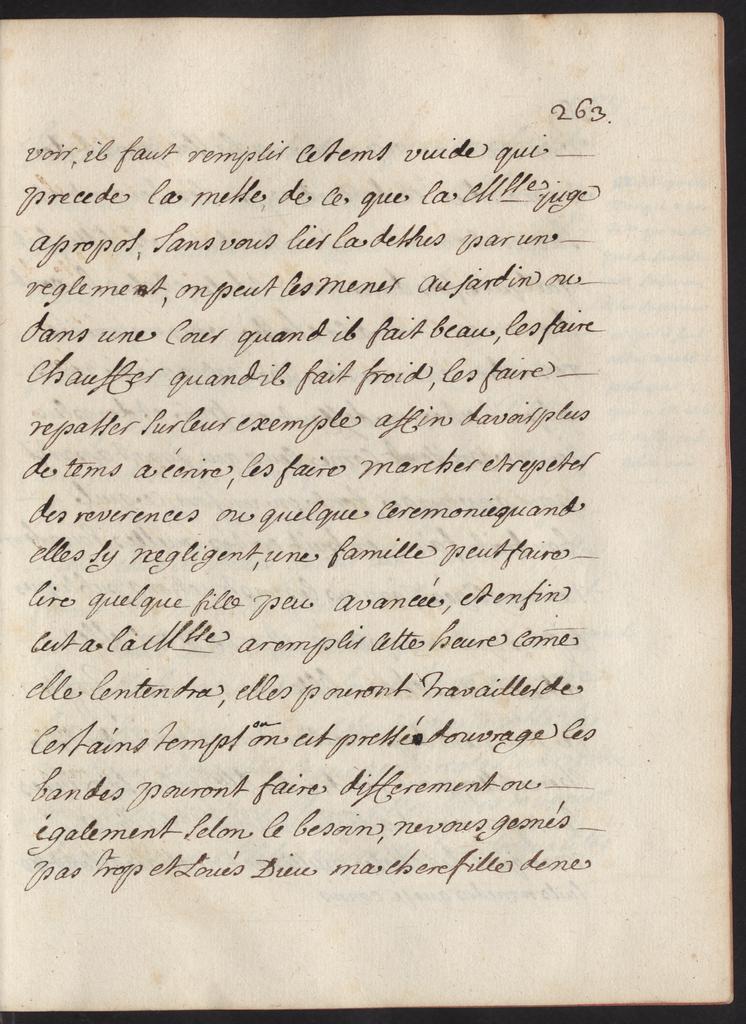 263.
voir, il faut remplir ce tems vuide qui
precede la messe, de ce que la Mlle juge
apropos, sans vous lier la dessus par un
reglement, on peut les mener au jardin ou
dans une Cour quand il fait beau, les faire
Chauffer quand il fait froid, les faire
repasser sur leur exemple affin davoir plus
de tems a écrire, les faire marcher et repeter
des reverences ou quelque ceremonie quand
elles sy negligent, une famille peut faire
lire quelque fille peu avancée, et enfin
cest a la Mlle a remplir cette heure come
elle lentendra, elles pouront travailler de
certains temps ou on est pressé douvrage les
bandes pouront faire differement ou
également selon le besoin, ne vous gesnés
pas trop et Loués Dieu ma chere fille de ne